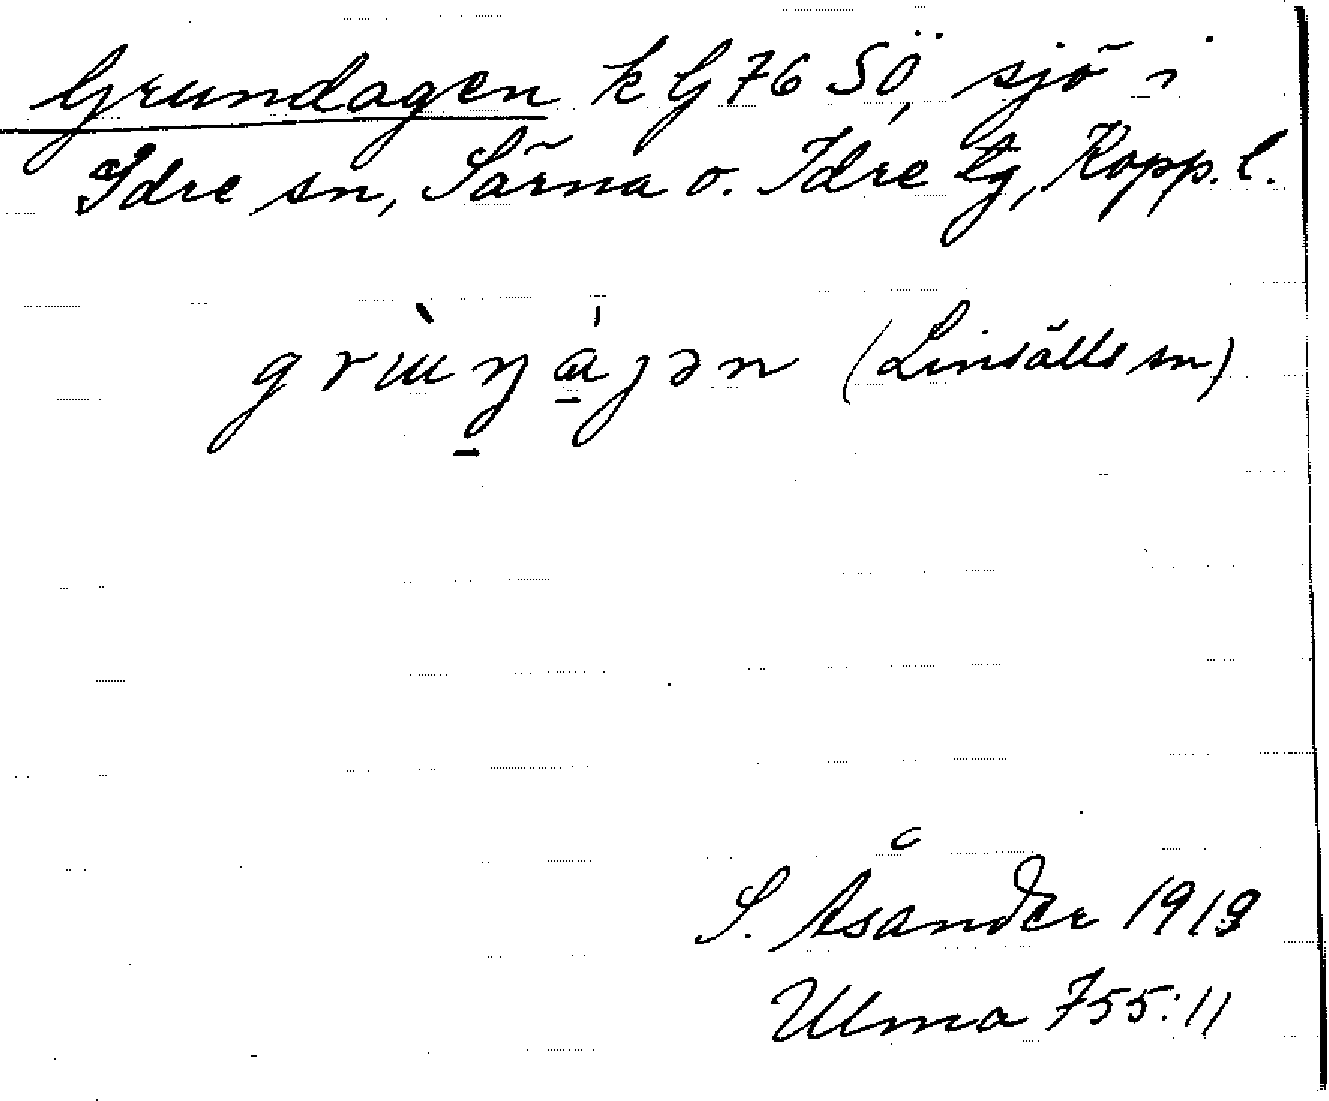 Grundagen k G 76 SÖ, sjö i
Idre sn, Särna o. Idre tg, Kopp. l.
(Linsälls sn)
S. Åsander 1919
Ulma 755:11